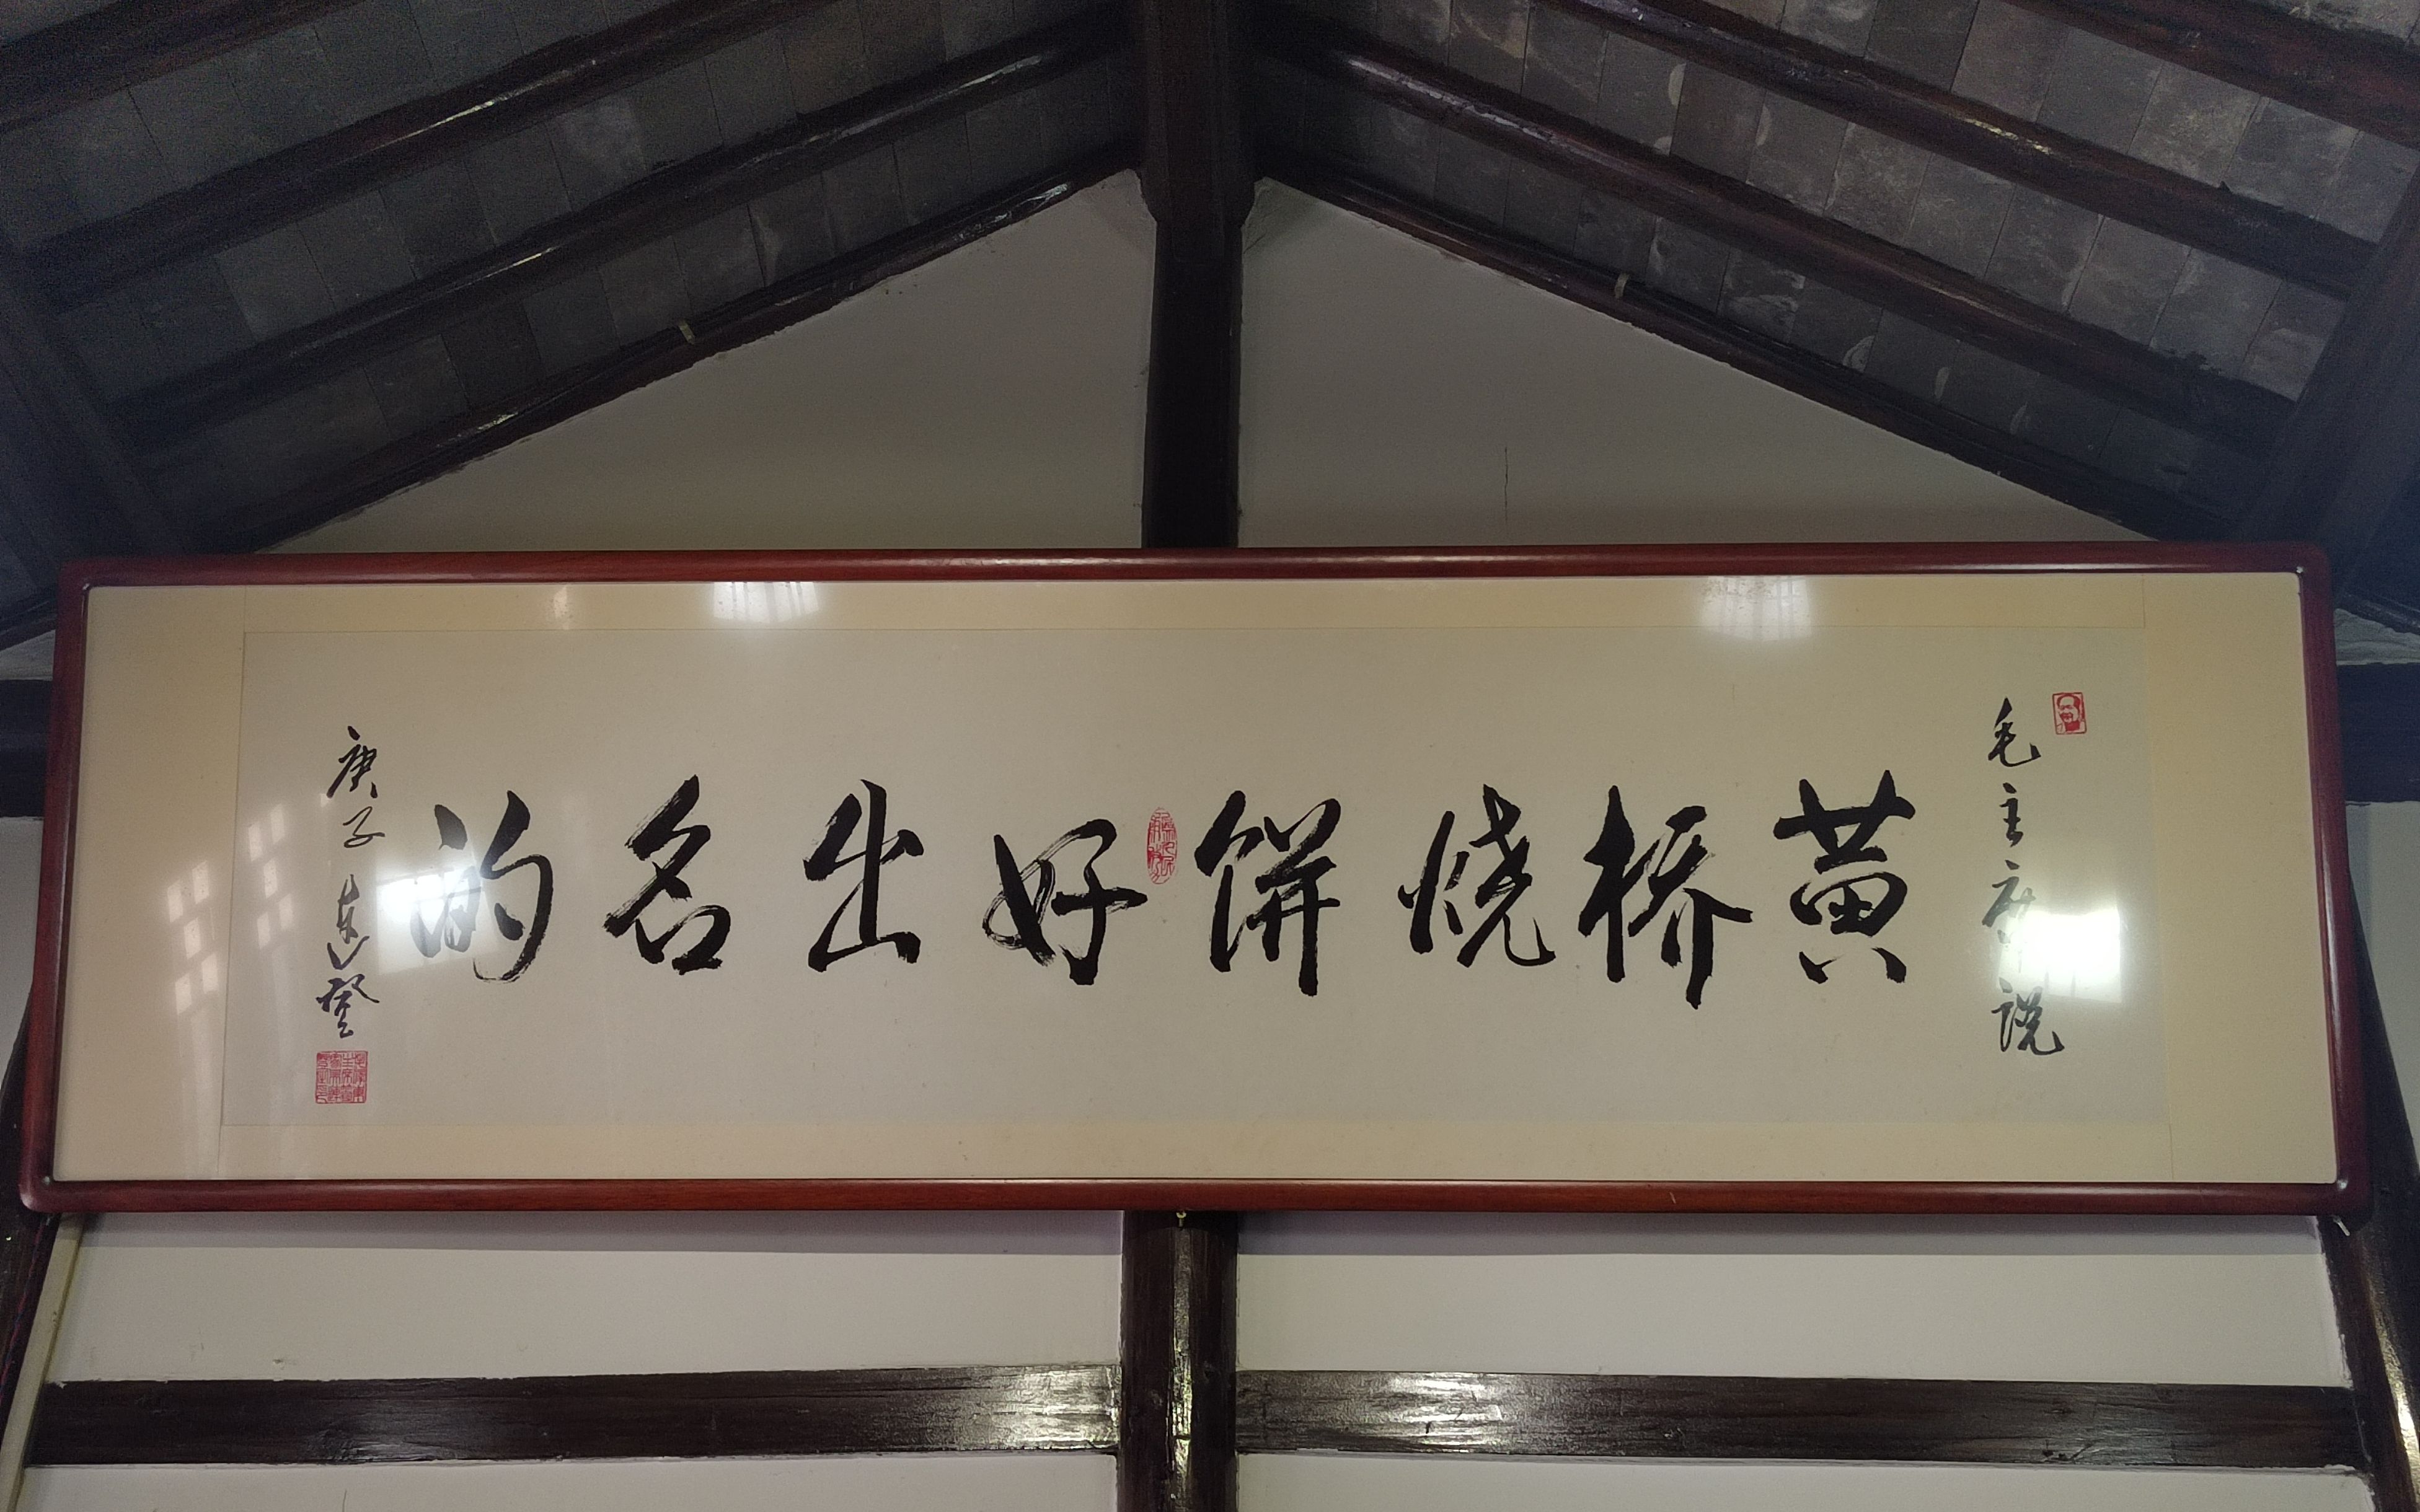 毛主席说
黄桥烧饼好出名的
庚子